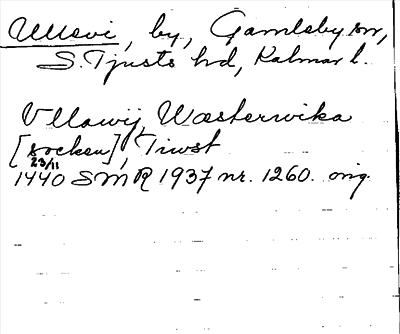 Ullevi, by, Gamleby sn,
S. Tjusts hd, Kalmar l.
Vllawij, Wæsterwika
[socken], Tiwst
23/11
1440 SMR 1937 nr. 1260. orig.